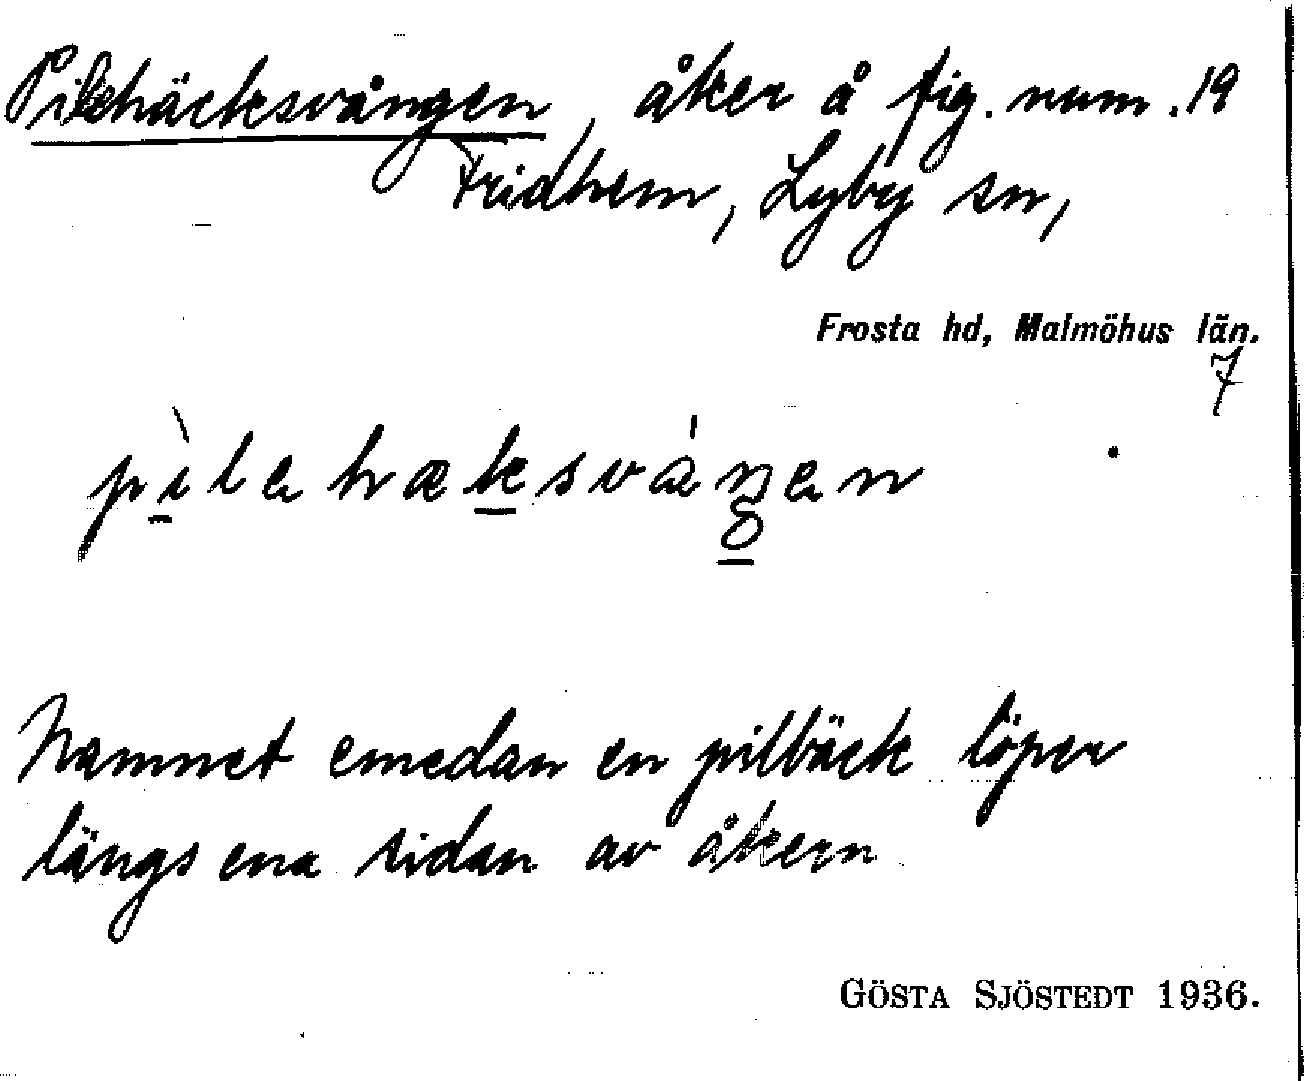 Pilehäcksvången, åker å fig. num. 19
Fridhem, Lyby sn,
Frosta hd, Malmöhus län.
7
pìlehæksvåŋen
Namnet emedan en pilbäck löper
längs ena sidan av åkern
GÖSTA SJÖSTEDT 1936.